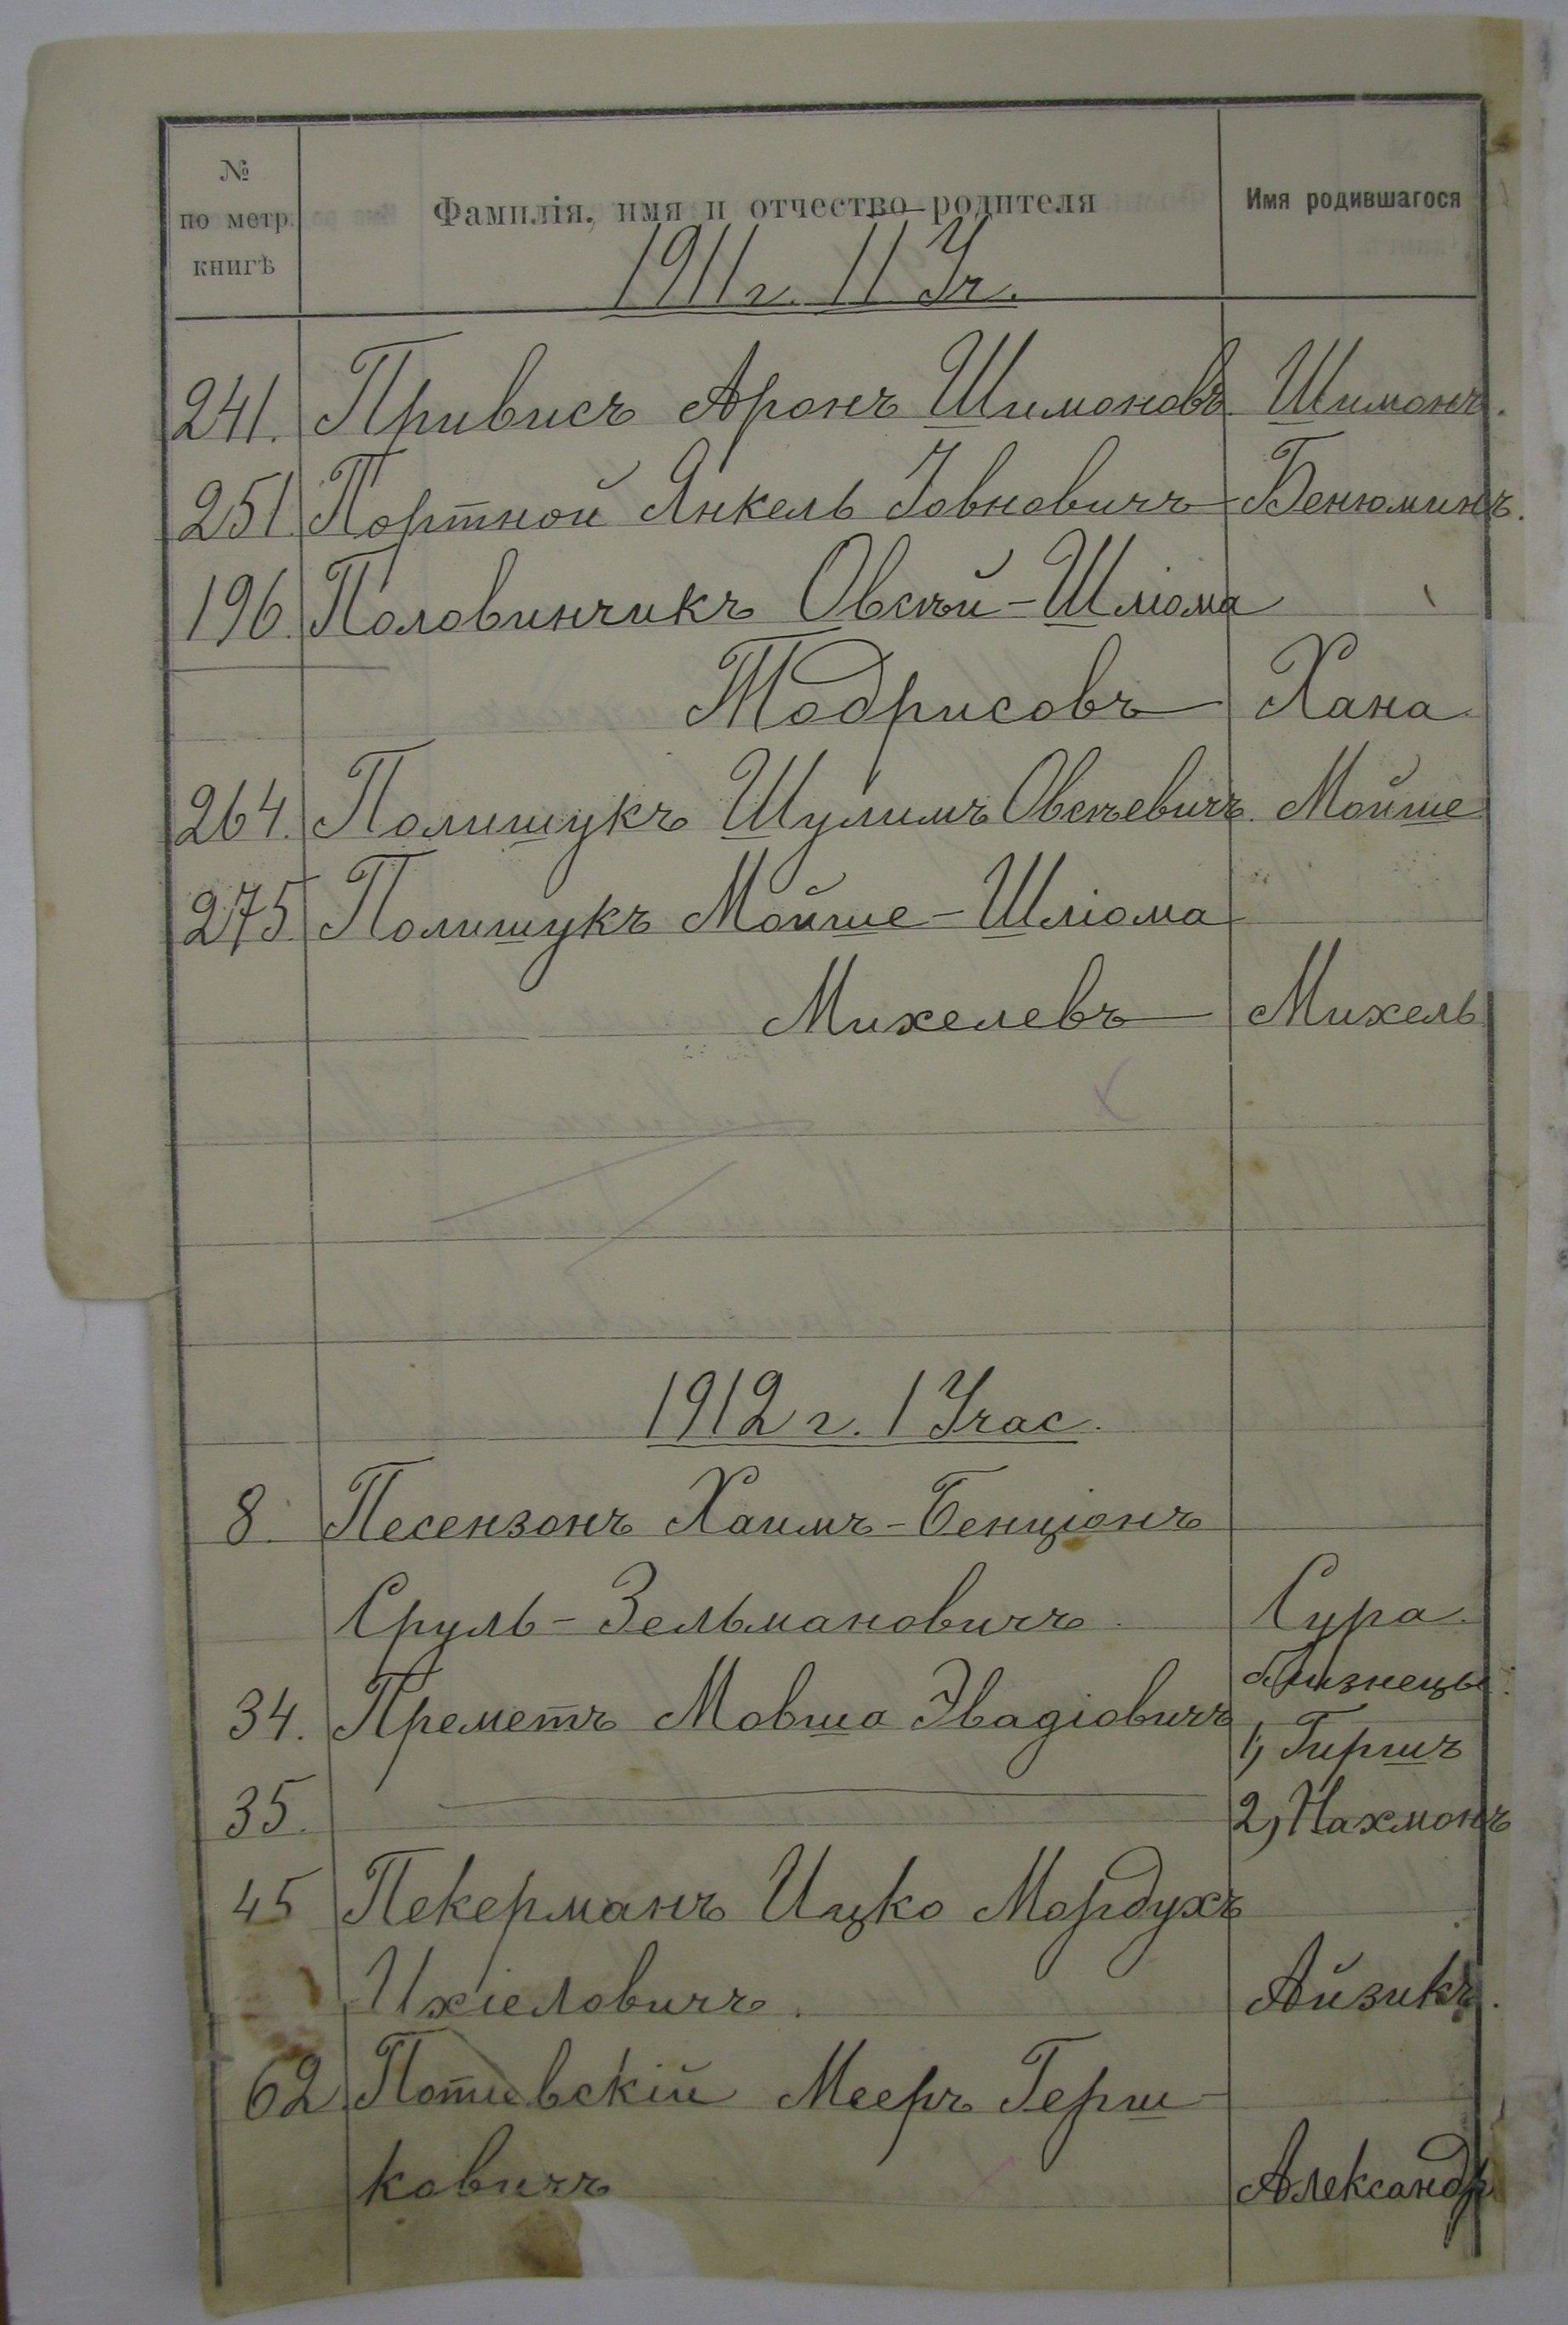 № по метр. книгѣ
Фамилія, имя и отчество родителя
Имя родившагося
1911 г. II Уч.
241. Привисъ Аронъ Шимоновъ. Шимонъ.
251. Портной Янкель Іовновичъ Бенюминъ.
196. Половинчикъ Овсѣй-Шліома
Тодрисовъ Хана
264. Полишукъ Шулимъ Овсѣевичъ. Мойше
275. Полишукъ Мойше-Шліома
Михелевъ Михель
1912 г. I Учас.
8. Песензонъ Хаимъ-Бенціонъ
Сруль-Зельмановичъ. Сура.
близнецы:
34. Преметъ Мовша Эвадіовичъ 1, Гиршъ
35. 2, Нахмонъ
45 Пекерманъ Ицко Мордухъ
Ихіеловичъ. Айзикъ.
62. Потиевскій Мееръ Герш-
ковичъ Александръ